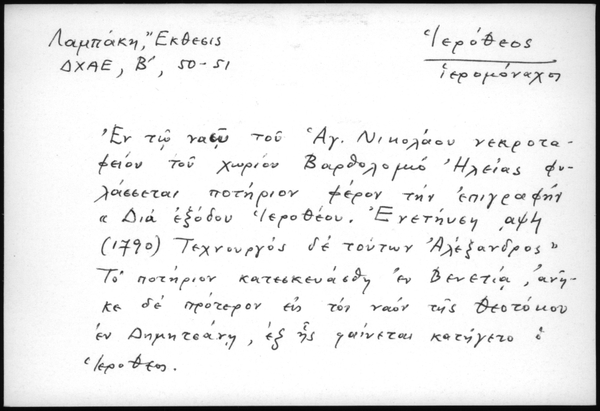 Λαμπάκη, "Ἔκθεσις
ΔΧΑΕ, Β', 50-51
Ἱερόθεος
ἱερομόναχος
Ἐν τῷ ναῷ τοῦ Ἁγ. Νικολάου νεκροτα-
φείου τοῦ χωρίου Βαρθολομιό Ἠλείας φυ-
λάσσεται ποτήριον φέρον τήν ἐπιγραφήν
« Διά ἐξόδου Ἱεροθέου. Ἐνετήησι ͵αψϟ
(1790) Τεχνουργός δέ τούτων Ἀλέξανδρος»
Τό ποτήριον κατεσκευάσθη ἐν Βενετίᾳ, ἀνῆ-
κε δέ πρότερον εἰς τόν ναόν τῆς Θεοτόκου
ἐν Δημητσάνῃ, ἐξ ἧς φαίνεται κατήγετο ὁ
Ἱερόθεος.